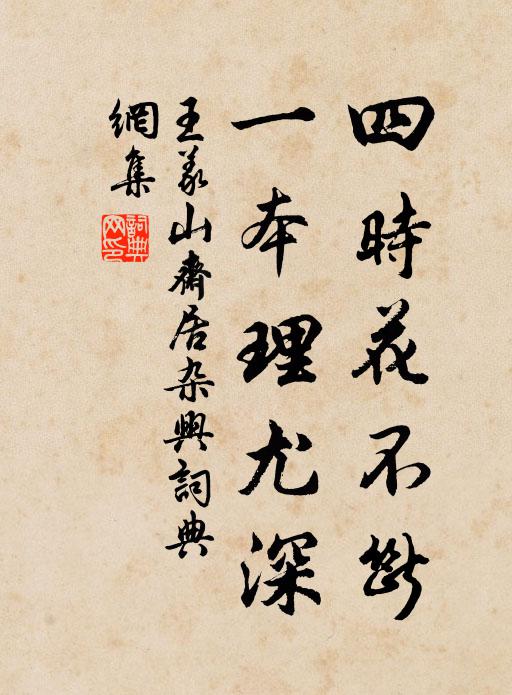 四時花不斷
一本理尤深
王義山齋居杂興詞典
網集
詞典
网印